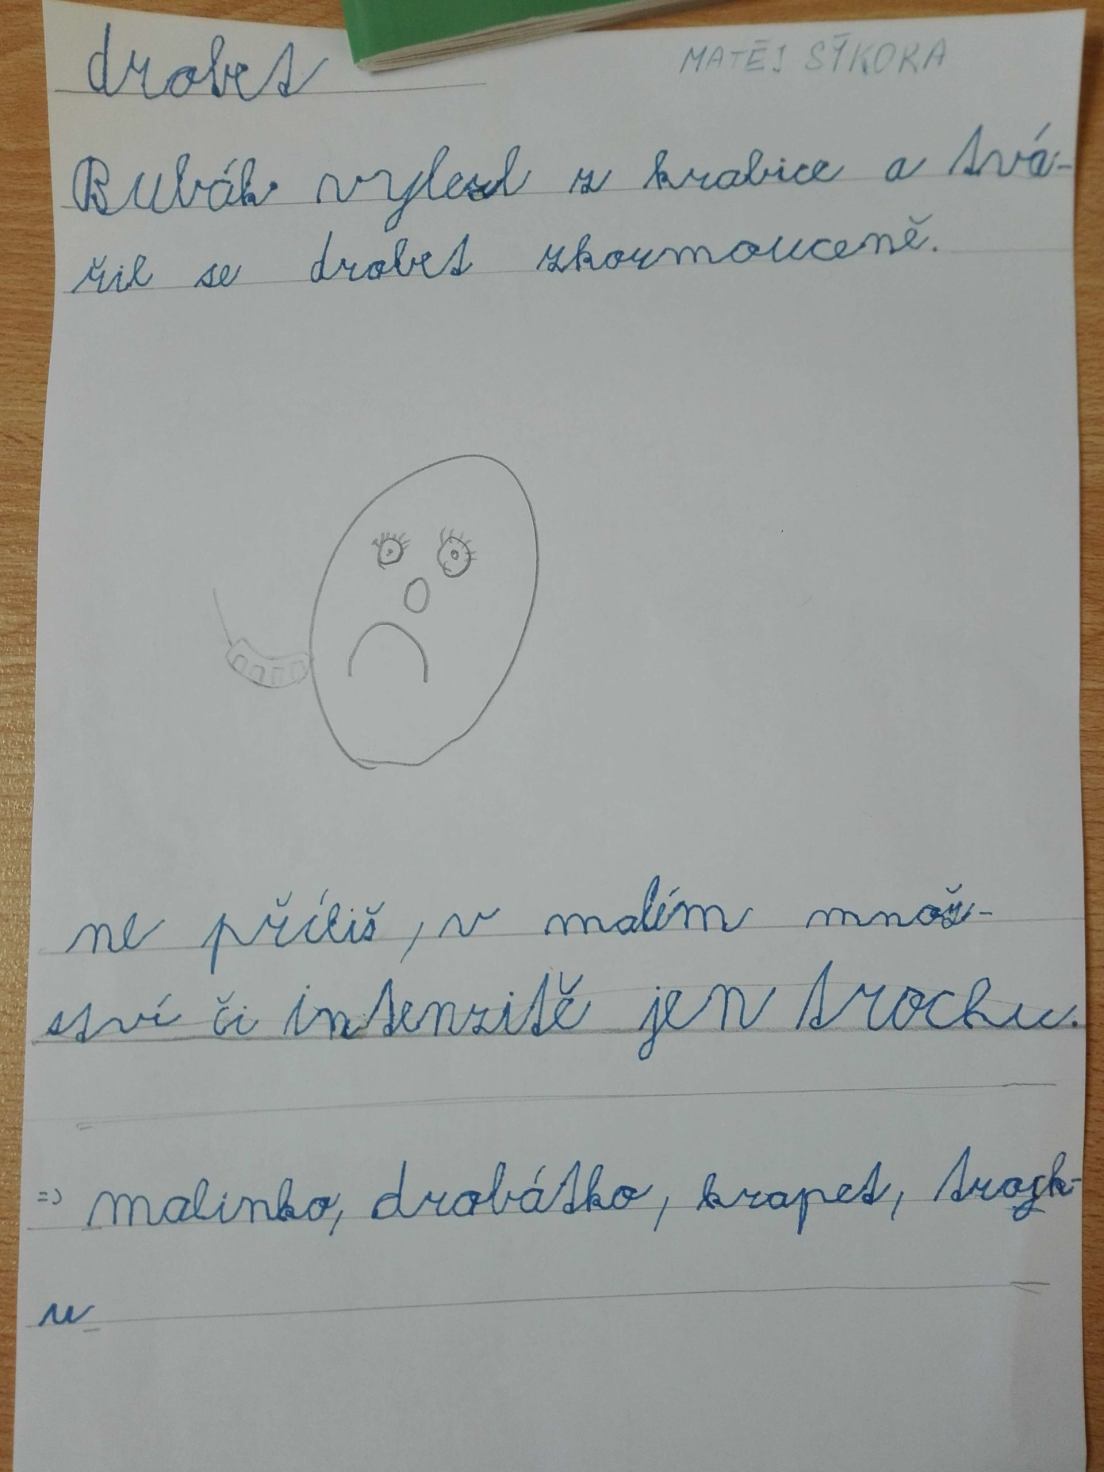 drobet
MATĚJ SÝKORA
Bubák vylezl z krabice a tvá-
řil se drobet zkormouceně.
ne příliš, v malém množ-
ství či intenzitě jen trochu.
=> malinko, drobátko, krapet, trošk-
u